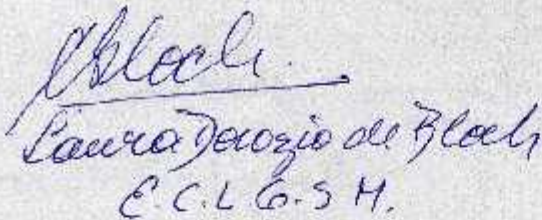 Bloch.
Laura Derozio de Bloch
E.C.L G.S M.